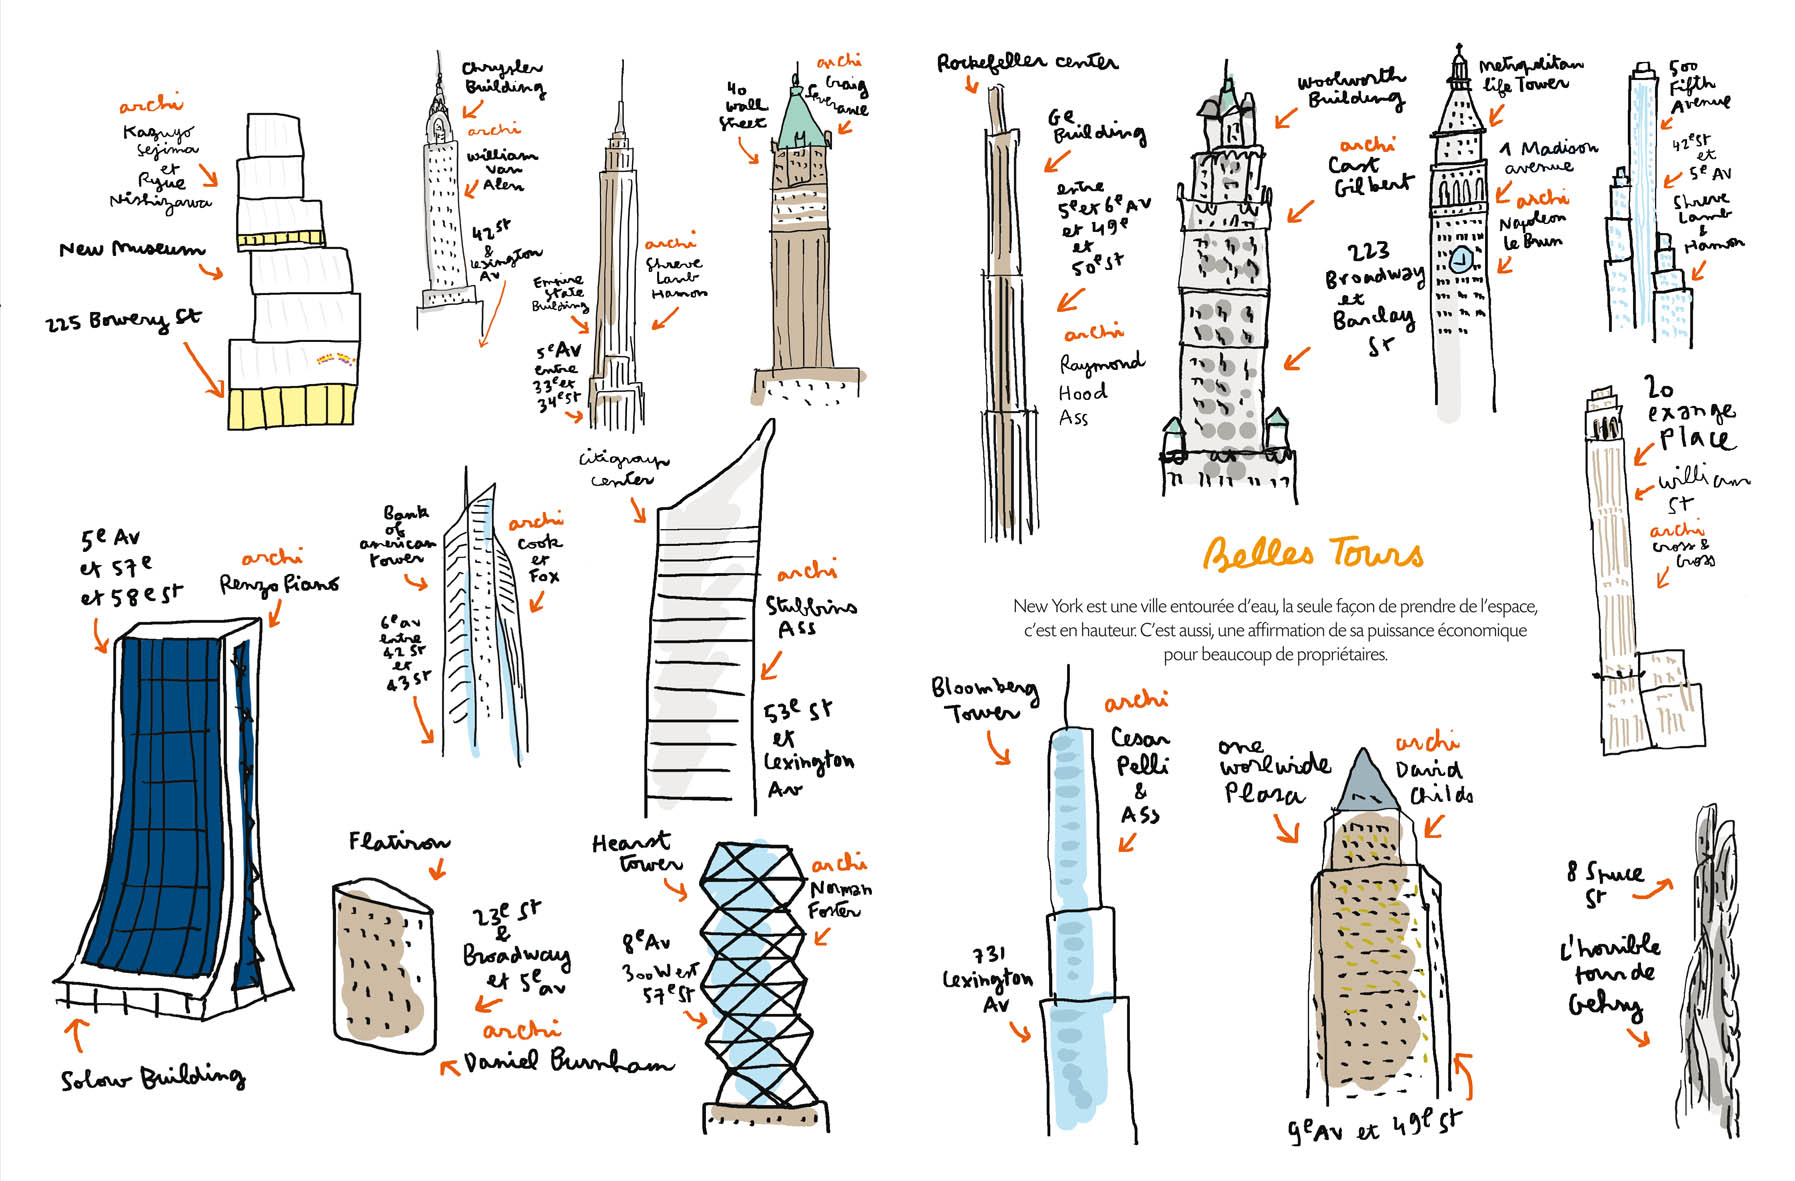 archi
Kazuyo
Sejima
et
Ryue
Nishizawa
New Museum
225 Bowery St
Chrysler
Building
archi
William
Van
Alen
42st
&
Lexington
Av
Empire
State
Building
5e Av
entre
33e et
34e st
archi
Shreve
Lamb
Hamon
40
Wall
Street
archi
Craig
Severance
5e Av
et 57e
et 58e st
archi
Renzo Piano
Solow Building
Bank
of
american
tower
6e av
entre
42 st
et
43 st
archi
Cook
et
Fox
Citigroup
center
archi
Stubbins
Ass
53e st
et
Lexington
Av
Flatiron
23e st
&
Broadway
et 5e
av
archi
Daniel Burnham
Hearst
tower
8e Av
300 West
57e st
archi
Norman
Foster
Rockefeller center
Ge
Building
entre
5e et 6e Av
et 49e
et
50e st
archi
Raymond
Hood
Ass
Woolworth
Building
archi
Cast
Gilbert
223
Broadway
et
Barclay
St
Metropolitan
life Tower
1 Madison
avenue
archi
Napoleon
le Brun
500
Fifth
Avenue
42e st
et
5e AV
Shreve
Lamb
&
Hamon
20
exange
Place
William
St
archi
Cross &
Cross
Belles Tours
New York est une ville entourée d'eau, la seule façon de prendre de l'espace,
c'est en hauteur. C'est aussi, une affirmation de sa puissance économique
pour beaucoup de propriétaires.
Bloomberg
Tower
archi
Cesar
Pelli
&
Ass
731
Lexington
Av
one
worlwide
Plaza
archi
David
Childs
9e Av et 49e st
8 Spruce
St
L'horrible
tour de
Gehry